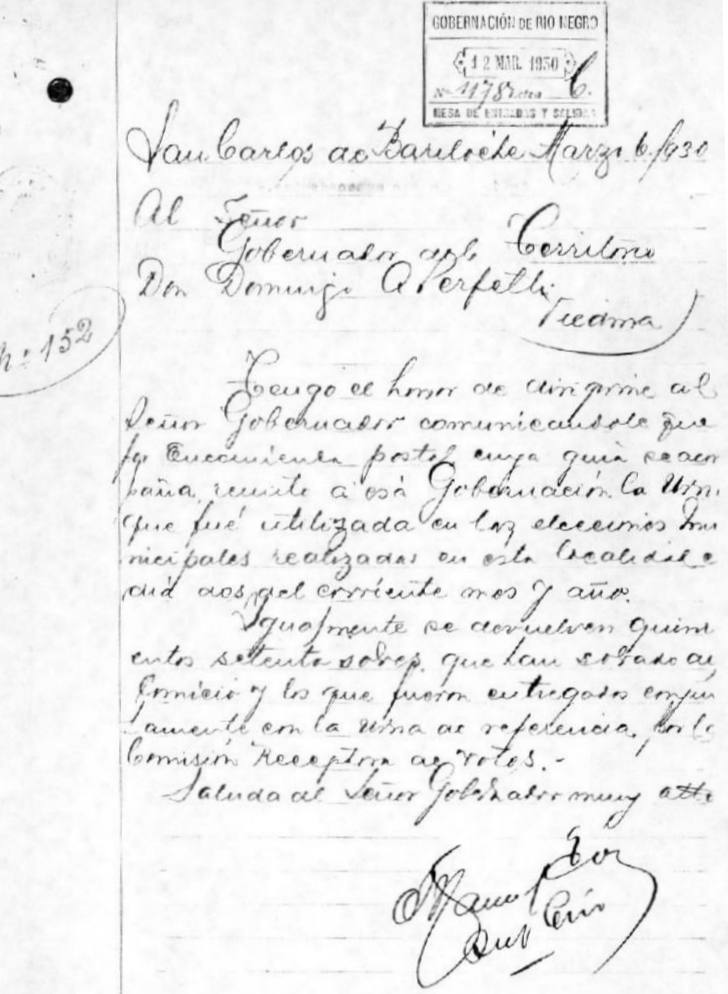 GOBERNACIÓN DE RIO NEGRO
12 MAR. 1930
Nº 1178 Letra C.
MESA DE ENTRADAS Y SALIDAS
San Carlos de Bariloche Marzo 6/930
Al Señor
Gobernador del Territorio
Don Domingo A Perfetti
Viedma
Nº 152
Tengo el honor de dirigirme al
Señor Gobernador comunicandole que
por Encomienda postal cuya guia se acom
paña, remito a esá Gobernación la Urna
que fué utilizada en las elecciones mu
nicipales realizadas en esta localidad e
dia dos del corriente mes y año.
Igualmente se devuelven quini
entos setenta sobres, que han sobrado del
Comicio y los que fueron entregados conjun
tamente con la urna de referencia, por la
Comisión Receptora de votos.-
Saluda al Señor Gobernador muy atte